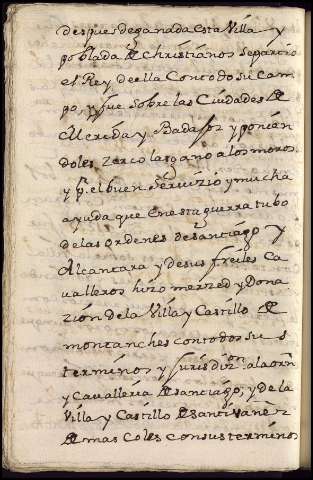 despues de ganada esta Villa y
poblada de Christianos se partio
el Rey de ella con todo su cam
po, y fue sobre las Ciudades de
Merida y Badajoz y ponien
doles zerco las gano a los moros
y pr. el buen servizio y mucha
ayuda que en esta guerra tubo
de las ordenes de Santiago y
Alcantara y de sus freiles Ca
valleros hizo merzed y Dona
zion de la Villa y Castillo de
montanches con todos su s
terminos y jurisdizon a la orn
y Cavalleria de Santiago; y de la
Villa y Castillo de Santivañez
de mascoles con sus terminos